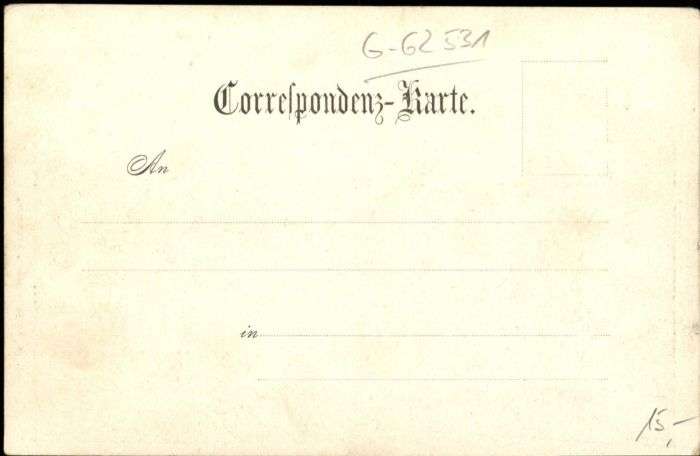 G-62531
Correspondenz-Karte.
An
in
15,-